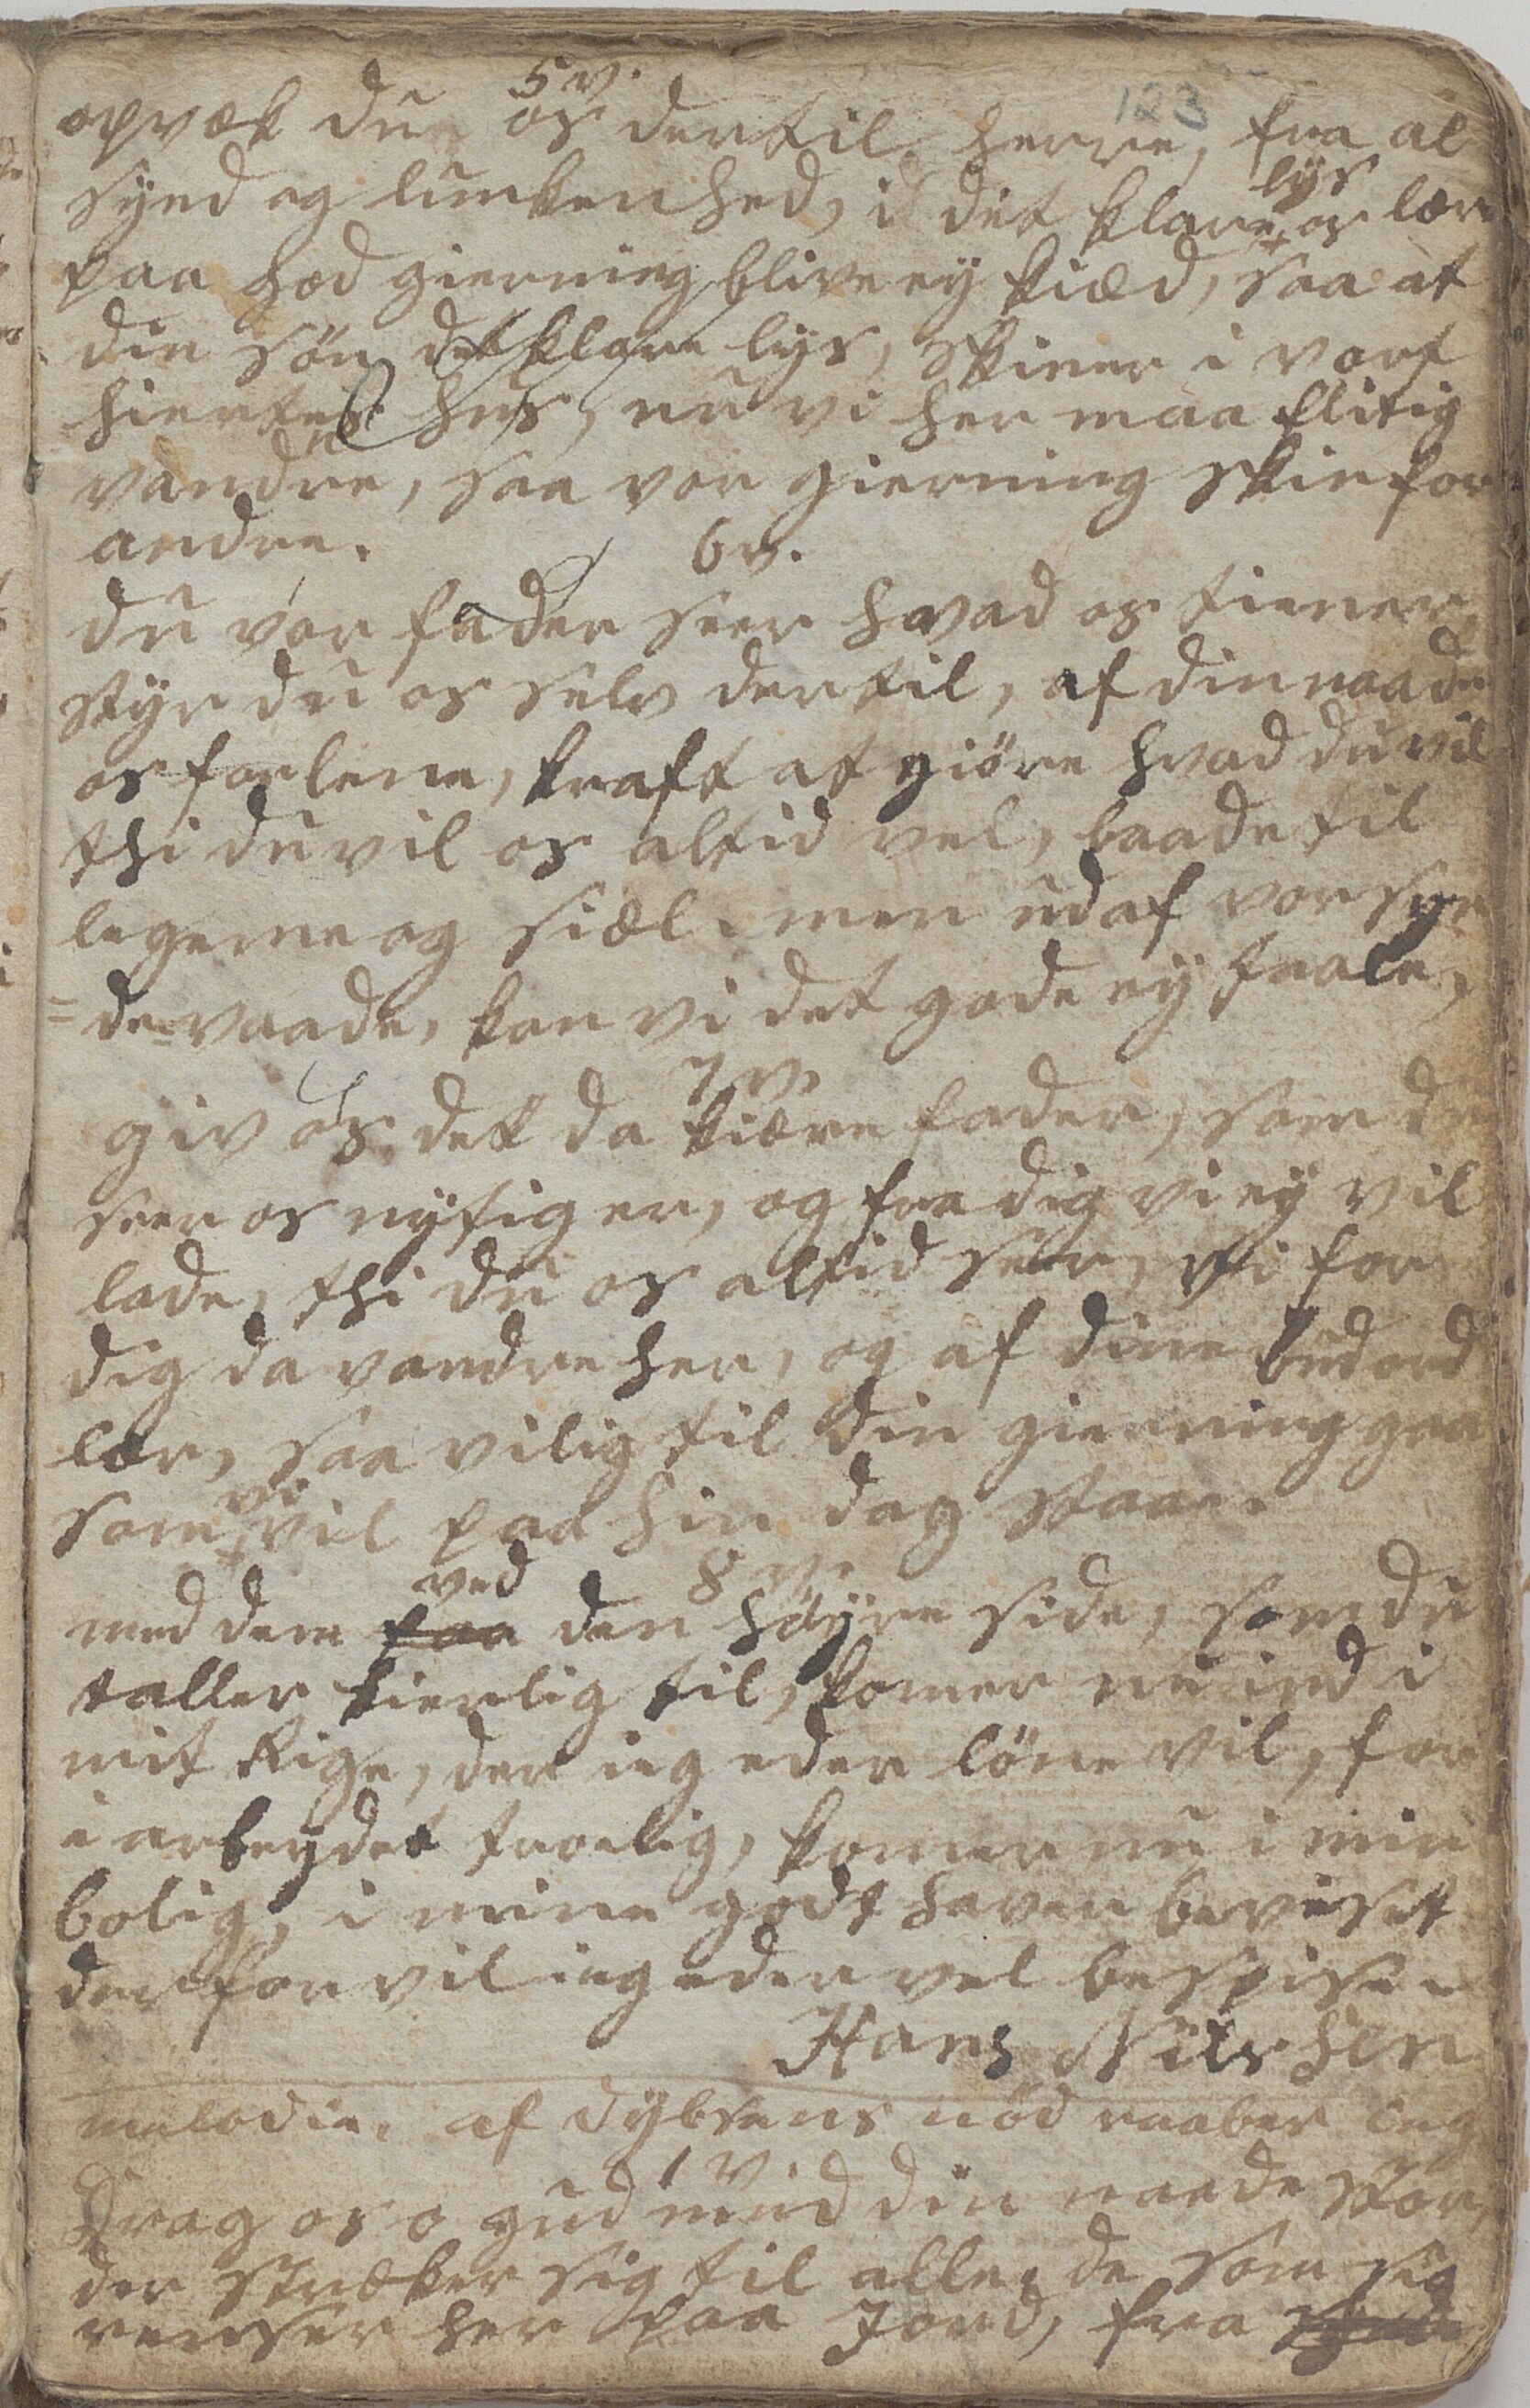 5 v.
123
opvæk du os dertil herre, fra al
synd og lunkenhed, i det klare lys os lær
paa god gierning blive ey kied, saa at
din søn det klare lys, skiner i vort
hiertes hus, nu vi her maa flitig
vandre, saa vor gierning skin for
andre.
6 v.
du vor fader seer hvad os tiener
styr du os selv dertil, af din naade
os forlene, kraft at giöre hvad du vil
thi du vil os altid vel, baade til
legeme og siæl. men ud af vor syn
=de vaade, kan vi det gode ey taale,
7 v.
giv os det da kiære fader, som du
seer os nyttig er, og fra dig vi ey vil
lade, thi du os altid seer, vi for
dig da vandre her, og af dine budord
lær, saa vilig til din gierning gaa
som vi vil paa hin dag staa.
8 v.
med dem paa ved den høyre side, som du
taller kierlig til, komer nu ind i
mit Rige, der ieg eder löne vil, for
i arbeydet troelig, komer nu i min
bolig, i mine godt haver beviset
derfor vil ieg eder vel bespise.
Hans Nilsen
melodie. af dybsens nød raaber ieg
1 v.
Drag os o gud med din naade stor,
der strækker sig til alle, de som sig
renser her paa Jord, fra